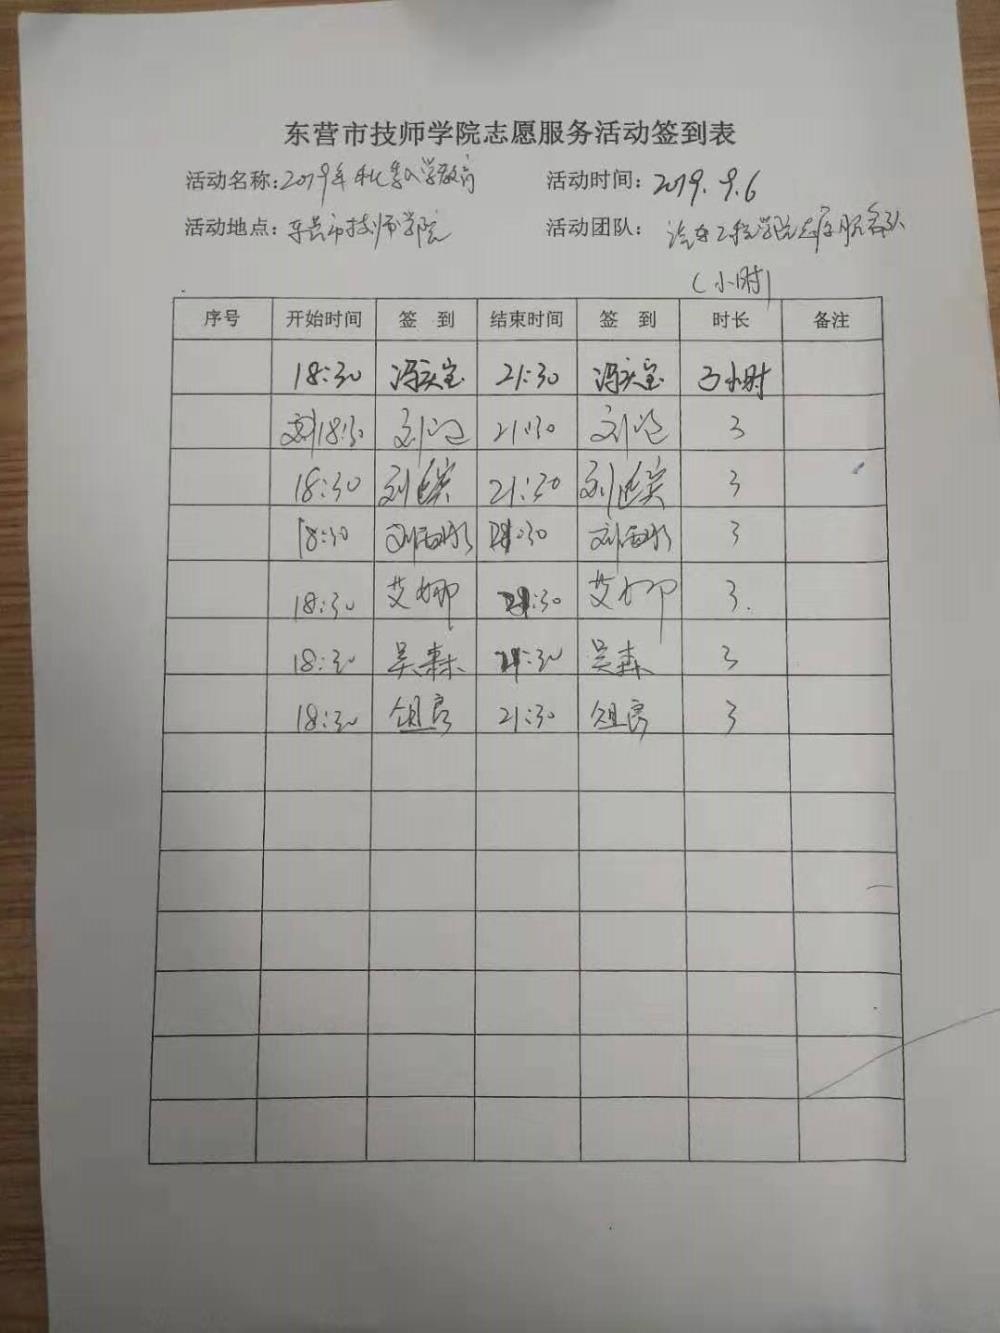 东营市技师学院志愿服务活动签到表
活动名称：2019年秋季入学教育 活动时间：2019.9.6
活动地点：东营市技师学院 活动团队：汽车工程学院志愿服务队
(小时)
序号 开始时间 签 到 结束时间 签 到 时长 备注
18:30 21:30 3小时
18:30 21:30 3
18:30 刘 21:30 刘 3
18:30 刘雨 21:30 刘雨 3
18:30 艾娜 21:30 艾娜 3.
18:30 吴森 21:30 吴森 3
18:30 21:30 3